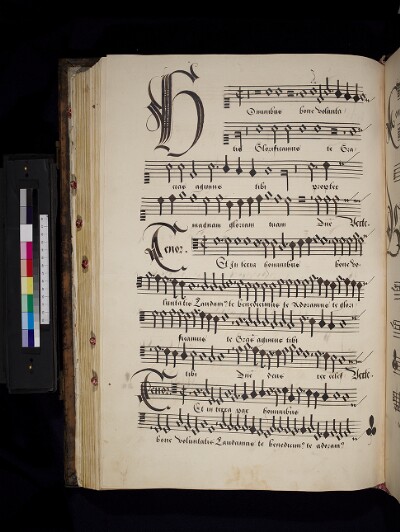 Hominibus bone volunta
tis Glorificamus te Gra
cias agimus tibi propter
magnam gloriam tuam Dne Verte.
Tenor.
Et in terra hominibus bone vo
luntatis Laudam? te benedicimus te Adoramus te glori
ficamus te Gras agimus tibi
tibi Dne deus rex celest Verte.
Tenor.
Et in terra pax hominibus
bone voluntatis Laudamus te benedicim? te adoram?